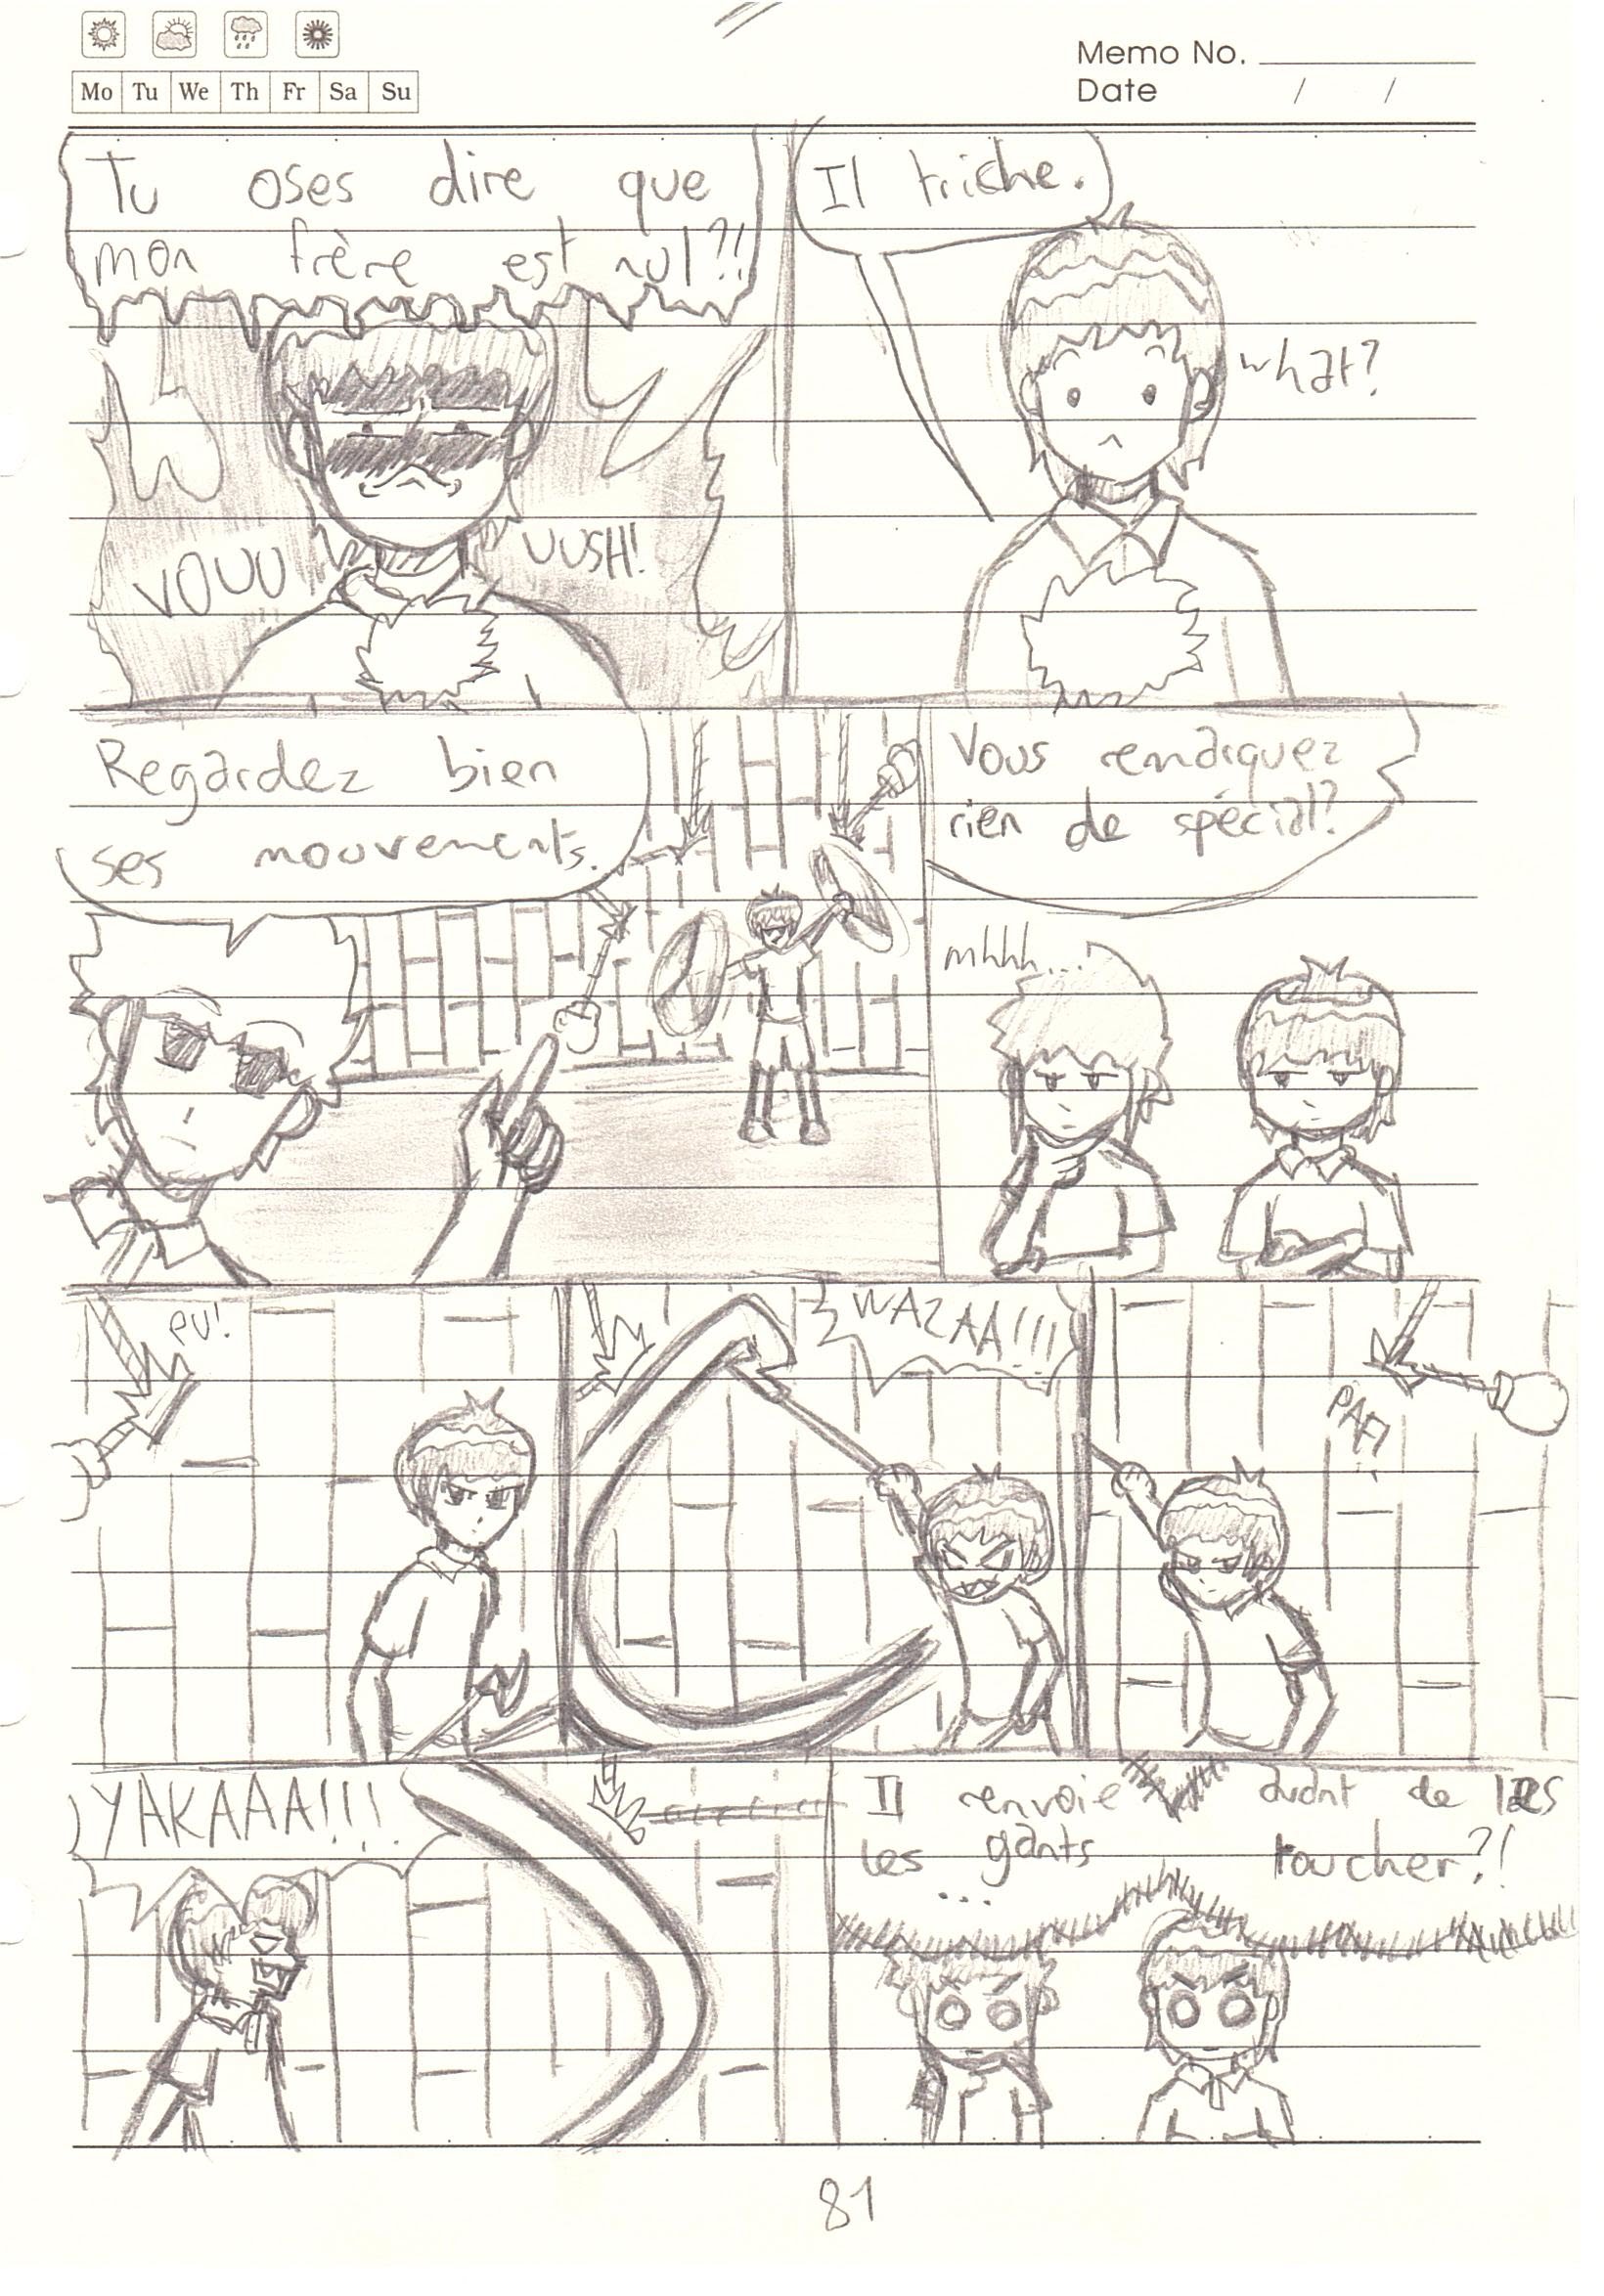 Memo No.
Mo Tu We Th Fr Sa Su
Date / /
Tu oses dire que
mon frère est nul?!
VOUU
UUSH!
Il triche.
what?
Regardez bien
ses mouvements.
Vous remarquez
rien de spécial?
mhhh...
PU!
WAZAA!!!
PAF!
YAKAAA!!!
Il renvoie avant de les
les gants toucher?!
...
81